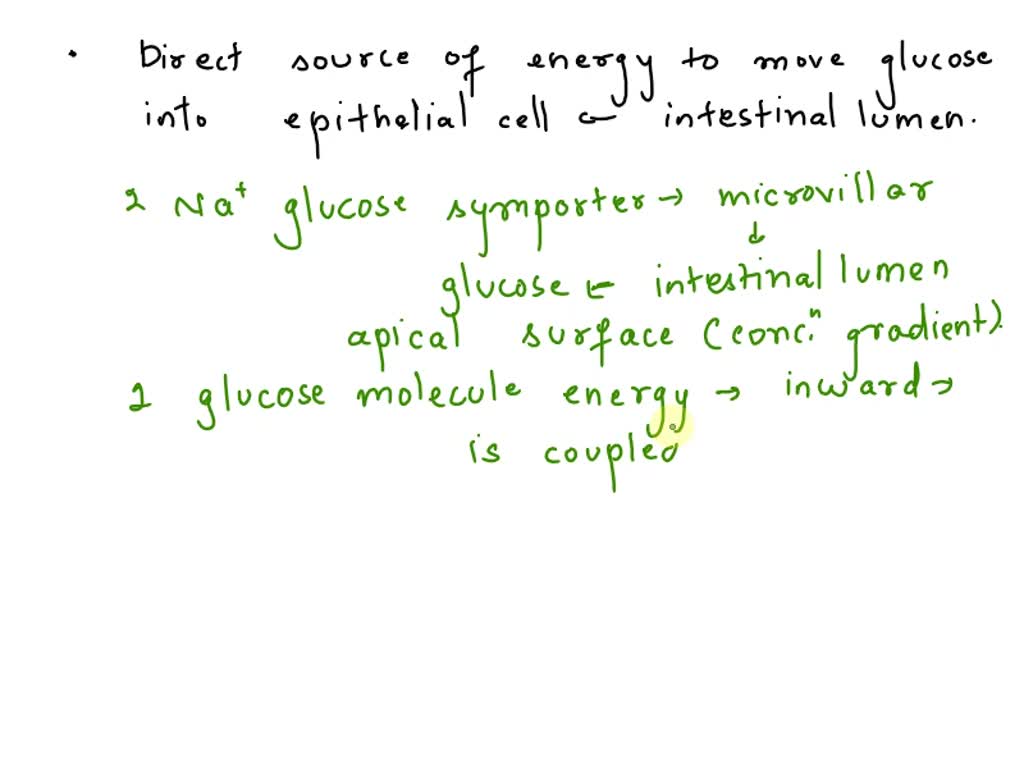 • Direct source of energy to move glucose
into epithelial cell ← intestinal lumen.
2 Na⁺ glucose symporter → microvillar
↓
glucose ← intestinal lumen
apical surface (concⁿ. gradient).
1 glucose molecule energy → inward →
is coupled